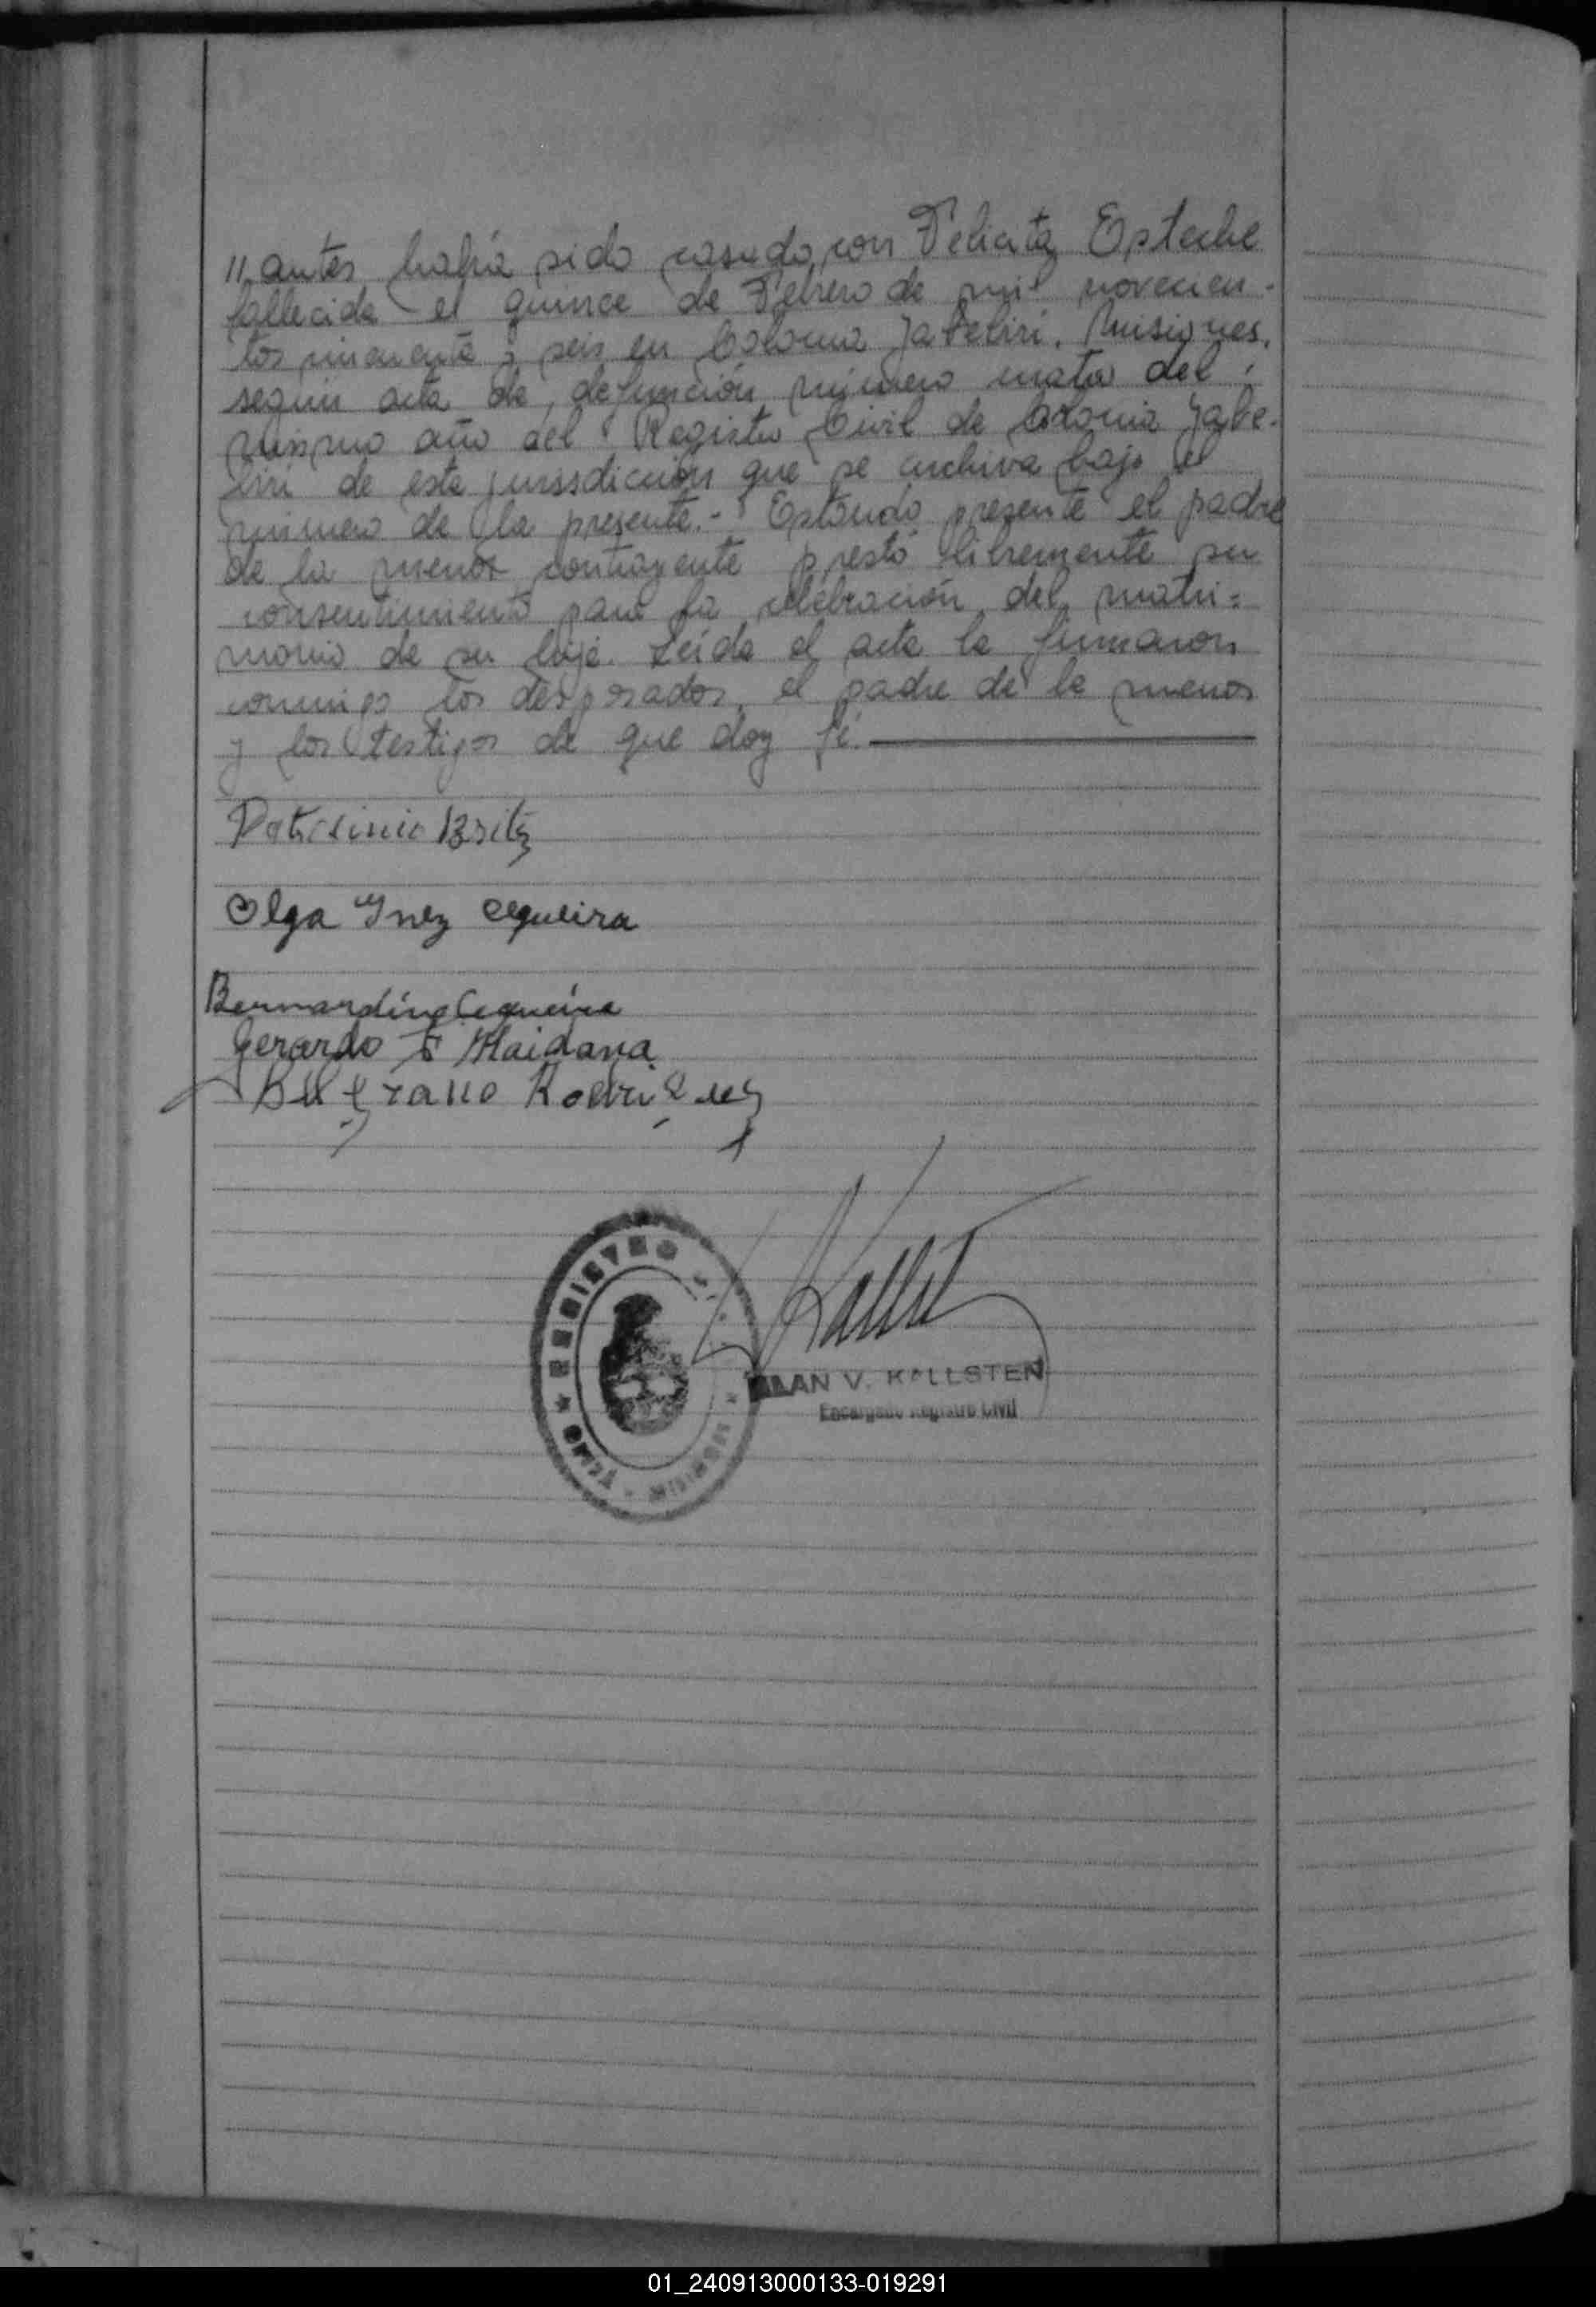 // antes había sido casado con Felicita Esteche
fallecida el quince de Febrero de mil novecien-
tos cincuenta y seis en Colonia Jabebirí, Misiones,
según acta de defunción número cuatro del
mismo año del Registro Civil de Colonia Jabe-
birí de esta jurisdicción que se archiva bajo el
número de la presente.- Estando presente el padre
de la menor contrayente prestó libremente su
consentimiento para la celebración del matri=
monio de su hija. Leída el acta la firmaron
conmigo los desposados, el padre de la menor
y los testigos de que doy fé.
Patrisinio Britez
Olga Ynez Cequeira
Bernardino Cequeira
Gerardo F Maidana
Beltrano Rodriguez
REGISTRO
ALAN V. KALLSTEN
Encargado Registro Civil
01_240913000133-019291